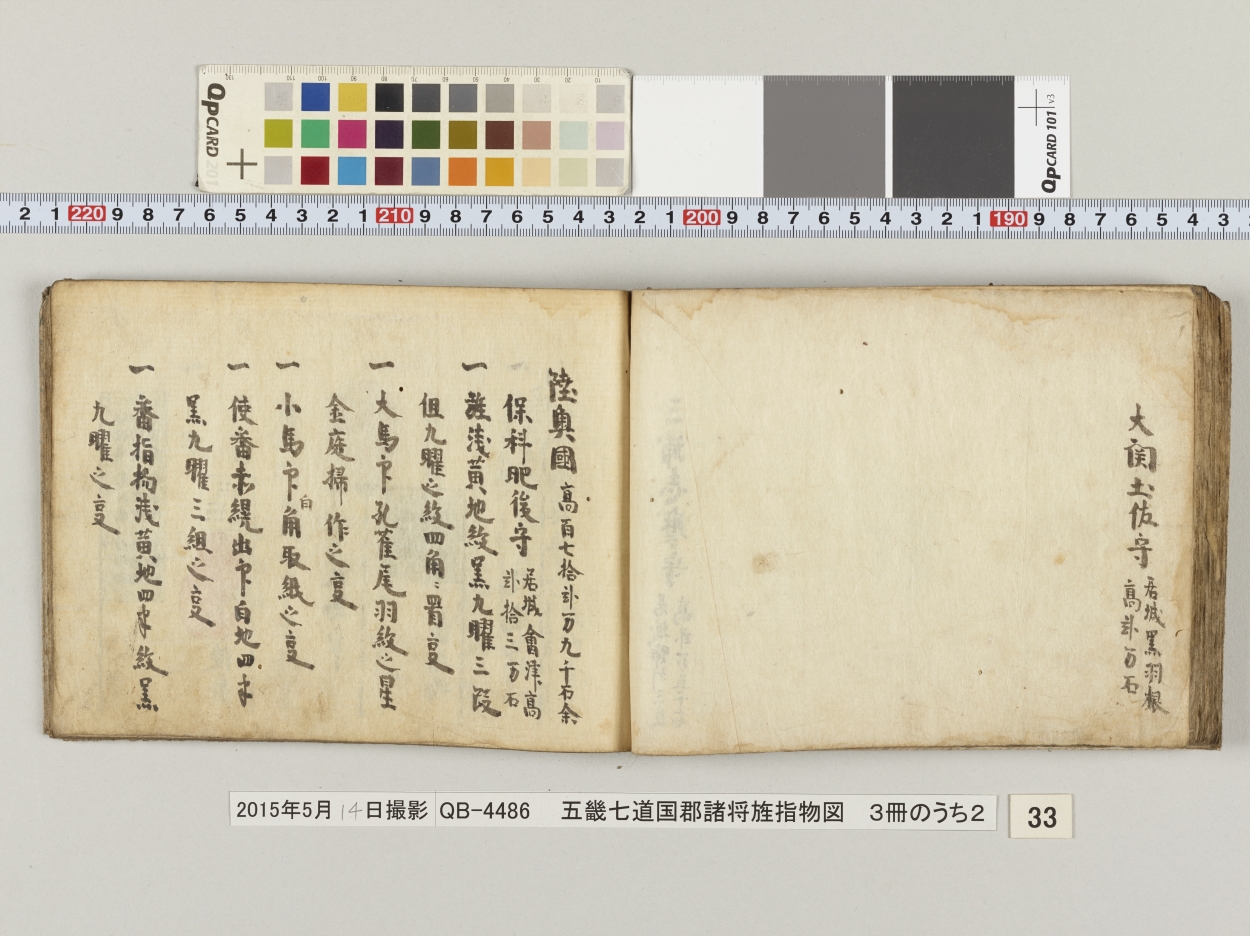 QPCARD 201
QPCARD 101 v3
2 1 220 9 8 7 6 5 4 3 2 1 210 9 8 7 6 5 4 3 2 1 200 9 8 7 6 5 4 3 2 1 190 9 8 7 6 5 4 3
大関土佐守 居城黒羽根
高弐万石
陸奥國 高百七拾弐万九千石余
保科肥後守 居城會津高
弐拾三万石
一 籏浅黄地紋黒九曜三段
但九曜之紋四角ニ置㕝
一 大馬印孔雀尾羽紋之星
金庭掃作之㕝
一 小馬印白角取紙之㕝
一 使番赤縨出印白地四半
黒九曜三組之㕝
一 番指物浅黄地四半紋黒
九曜之㕝
2015年5月14日撮影 QB-4486 五畿七道国郡諸将旌指物図 3冊のうち2
33